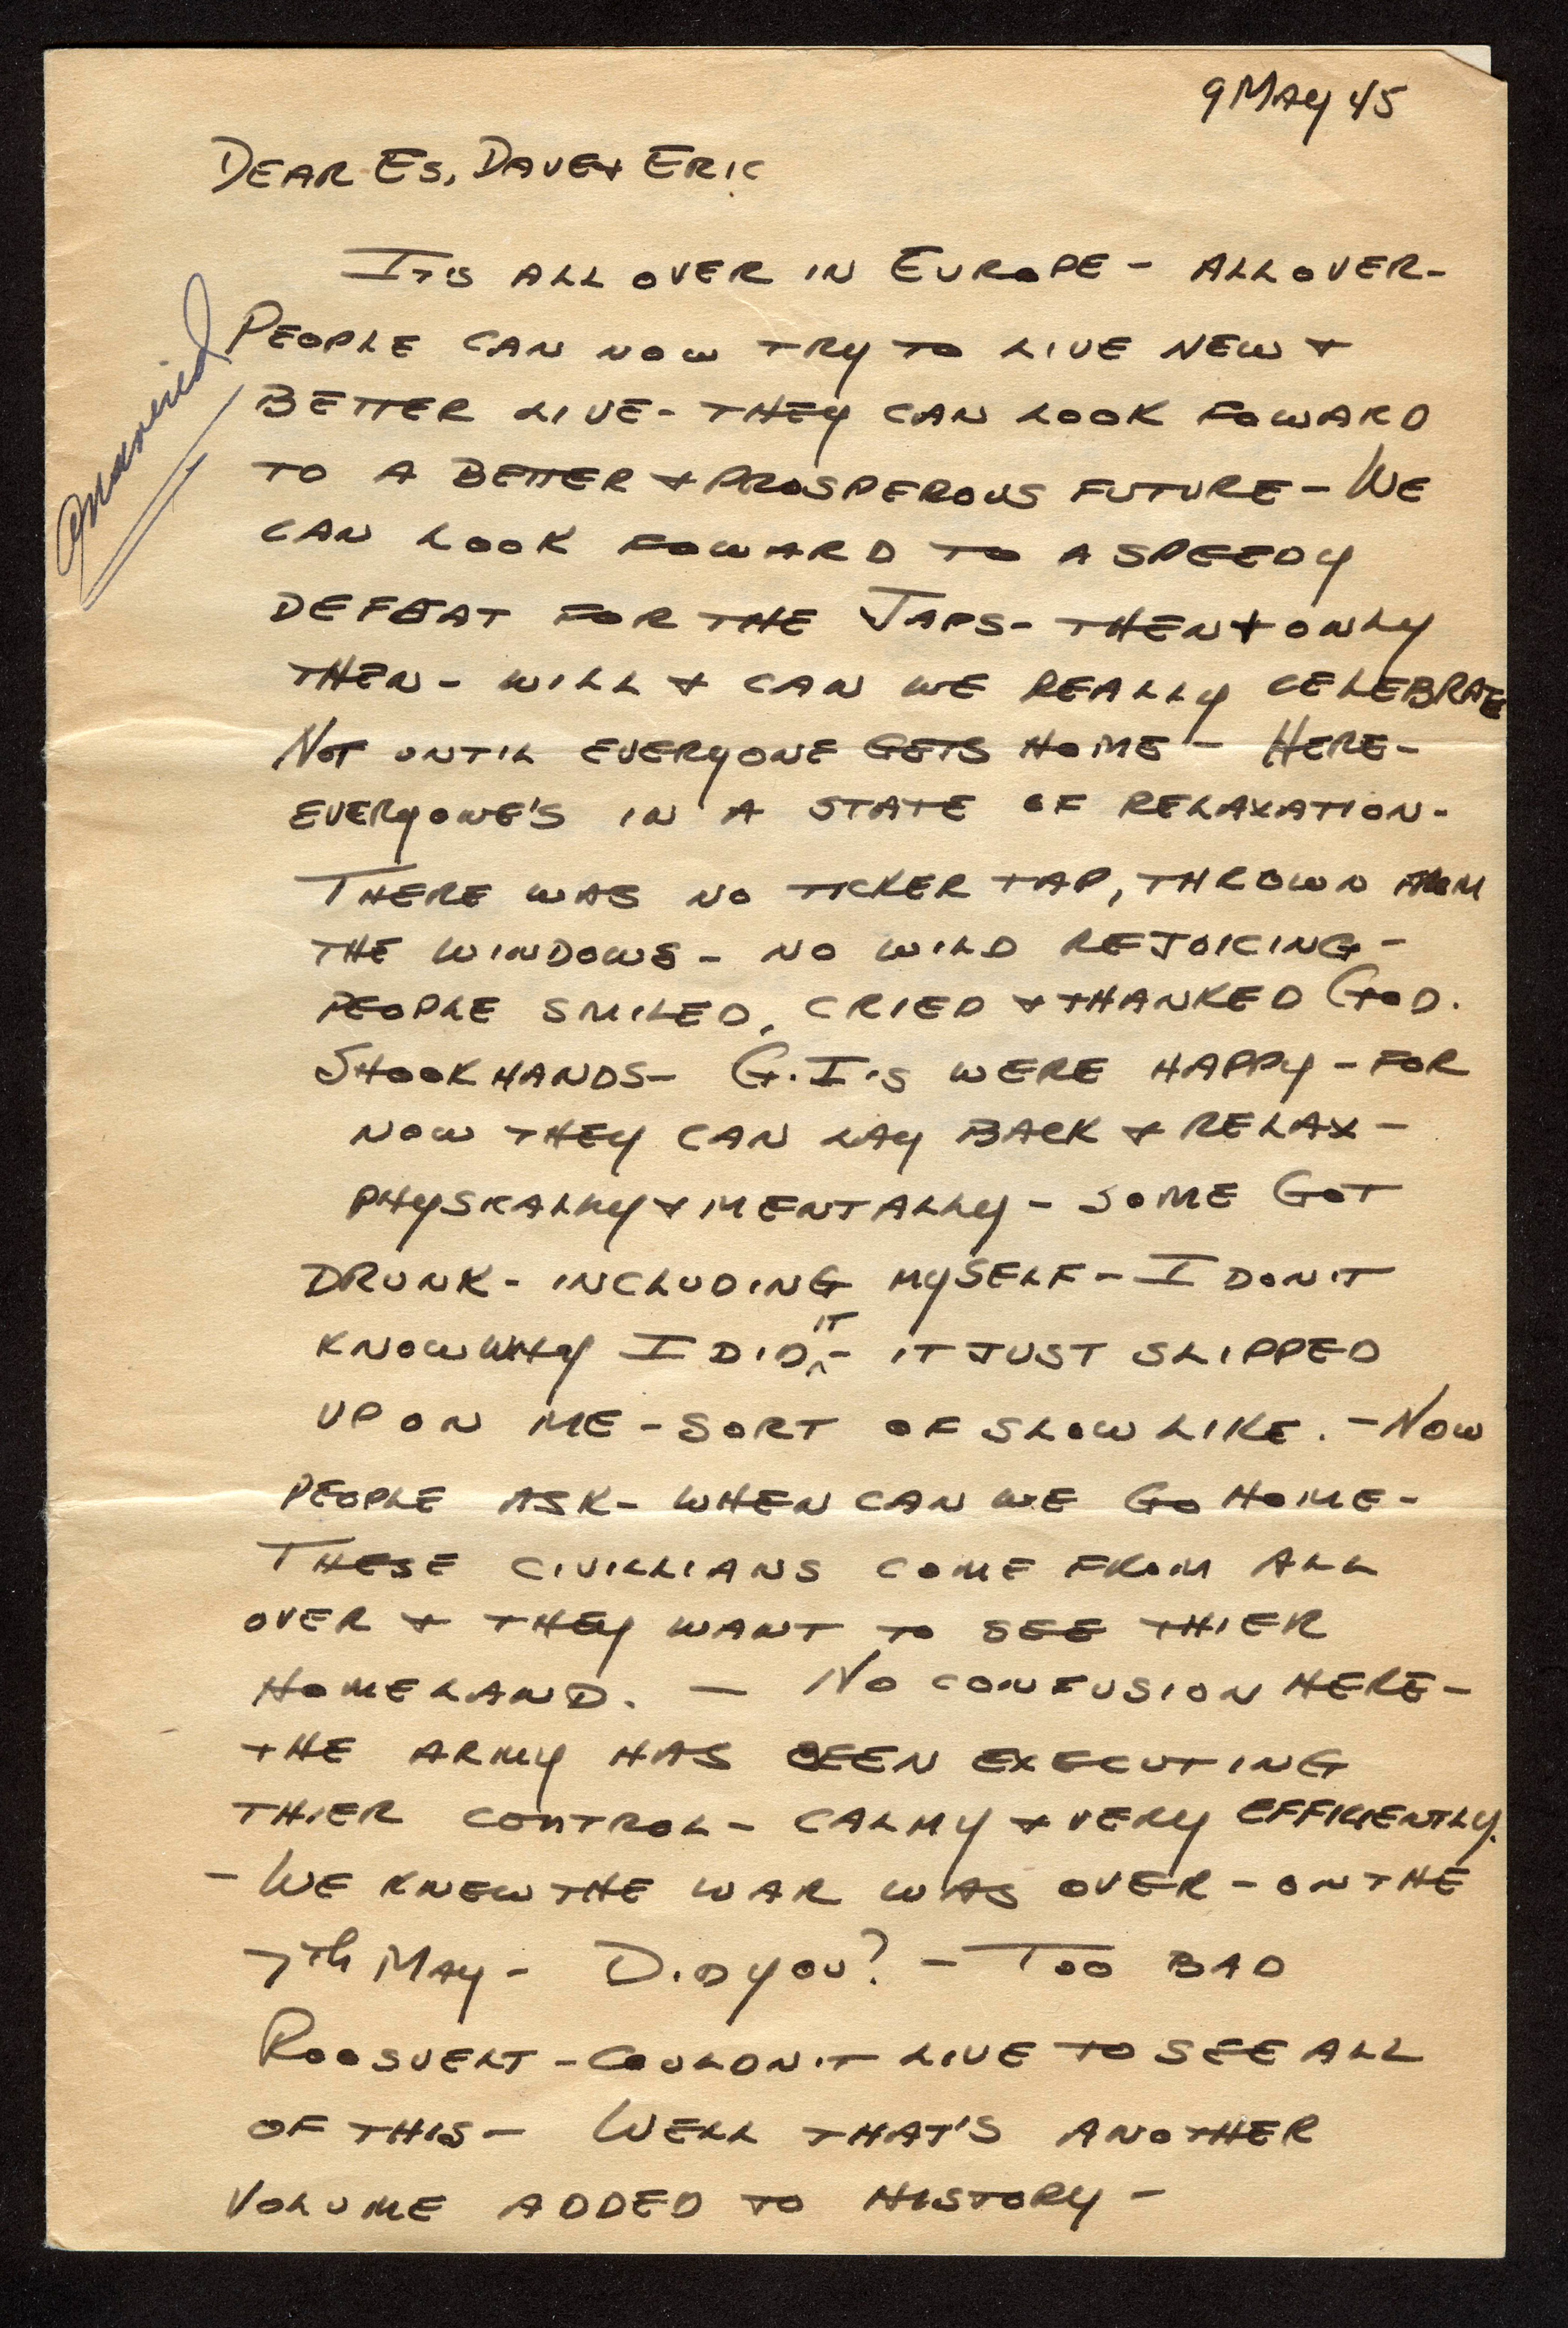 9 MAY 45
DEAR ES, DAVE & ERIC
IT'S ALL OVER IN EUROPE - ALL OVER -
PEOPLE CAN NOW TRY TO LIVE NEW &
BETTER LIVE - THEY CAN LOOK FOWARD
TO A BETTER & PROSPEROUS FUTURE - WE
CAN LOOK FOWARD TO A SPEEDY
DEFEAT FOR THE JAPS - THEN & ONLY
THEN - WILL & CAN WE REALLY CELEBRATE
NOT UNTIL EVERYONE GETS HOME - HERE -
EVERYONE'S IN A STATE OF RELAXATION -
THERE WAS NO TICKER TAP, THROWN FROM
THE WINDOWS - NO WILD REJOICING -
PEOPLE SMILED, CRIED & THANKED GOD.
SHOOK HANDS - G.I.'S WERE HAPPY - FOR
NOW THEY CAN LAY BACK & RELAX -
PHYSICALLY & MENTALLY - SOME GOT
DRUNK - INCLUDING MYSELF - I DON'T
KNOW WHY I DID IT - IT JUST SLIPPED
UP ON ME - SORT OF SLOW LIKE. - NOW
PEOPLE ASK - WHEN CAN WE GO HOME -
THESE CIVILLIANS COME FROM ALL
OVER & THEY WANT TO SEE THIER
HOMELAND. - NO CONFUSION HERE -
THE ARMY HAS BEEN EXECUTING
THIER CONTROL - CALMY & VERY EFFICIENTLY.
- WE KNEW THE WAR WAS OVER - ON THE
7th MAY - DID YOU? - TOO BAD
ROOSVELT - COULDN'T LIVE TO SEE ALL
OF THIS - WELL THAT'S ANOTHER
VOLUME ADDED TO HISTORY -